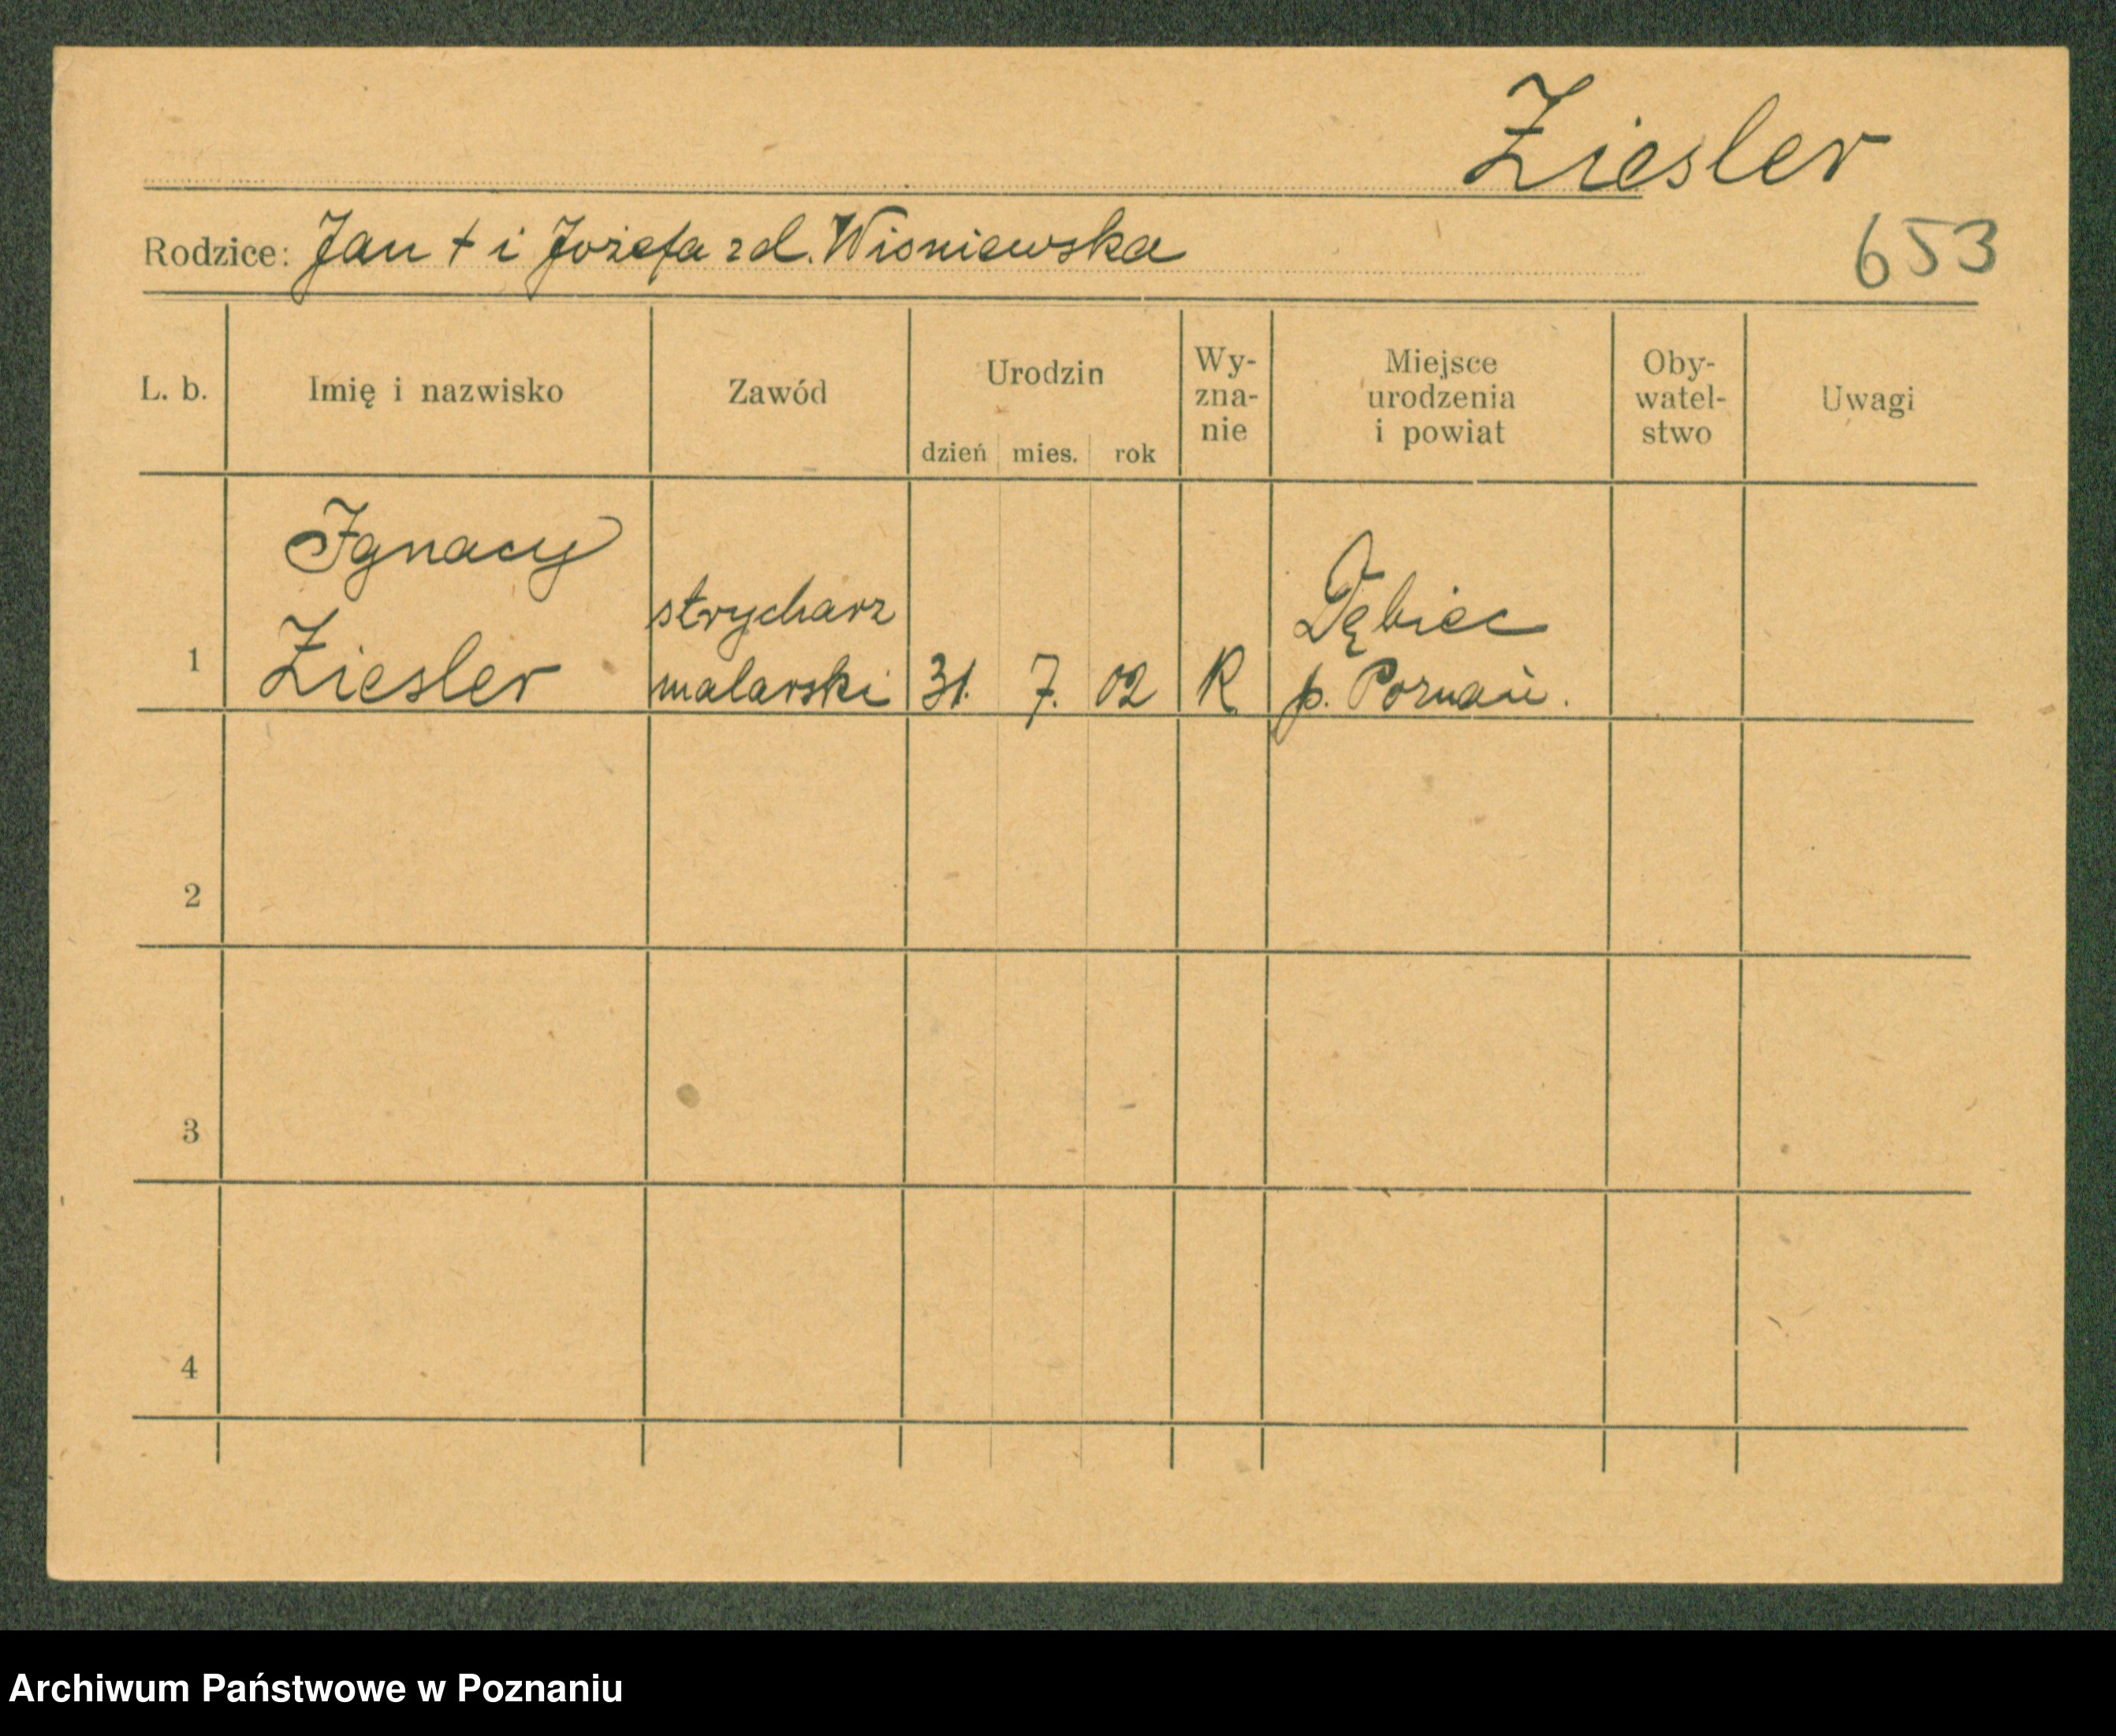 Ziesler
Rodzice: Jan + i Józefa zd. Wiśniewska
653
L. b.
Imię i nazwisko
Zawód
Urodzin
dzień mies. rok
Wy-
zna-
nie
Miejsce
urodzenia
i powiat
Oby-
watel-
stwo
Uwagi
1
Ignacy
Ziesler
strycharz
malarski
31. 7. 02
R.
Dębiec
p. Poznań.
2
3
4
Archiwum Państwowe w Poznaniu